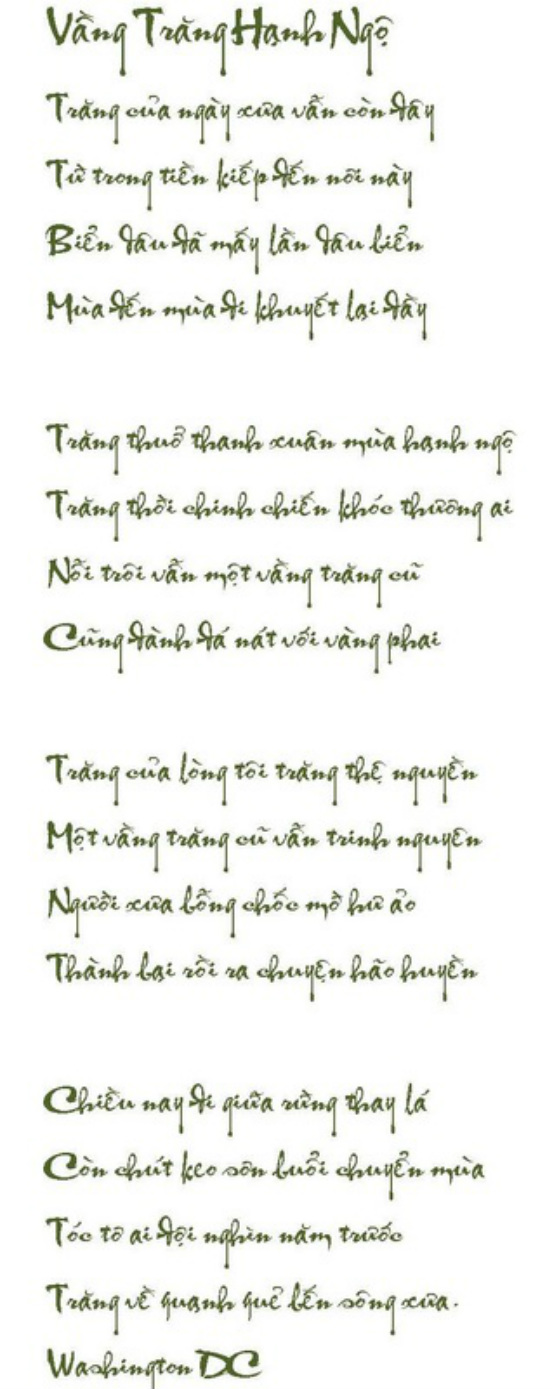 Vầng Trăng Hạnh Ngộ
Trăng của ngày xưa vẫn còn đây
Từ trong tiền kiếp đến nơi này
Biển dâu đã mấy lần dâu biển
Mùa đến mùa đi khuyết lại đầy
Trăng thuở thanh xuân mùa hạnh ngộ
Trăng thời chinh chiến khóc thương ai
Nổi trôi vẫn một vầng trăng cũ
Cũng đành đá nát với vàng phai
Trăng của lòng tôi trăng thệ nguyền
Một vầng trăng cũ vẫn trinh nguyên
Người xưa bỗng chốc mờ hư ảo
Thành bại rồi ra chuyện hão huyền
Chiều nay đi giữa rừng thay lá
Còn chút keo sơn buổi chuyển mùa
Tóc tơ ai đợi nghìn năm trước
Trăng về quạnh quẽ bến sông xưa.
Washington DC